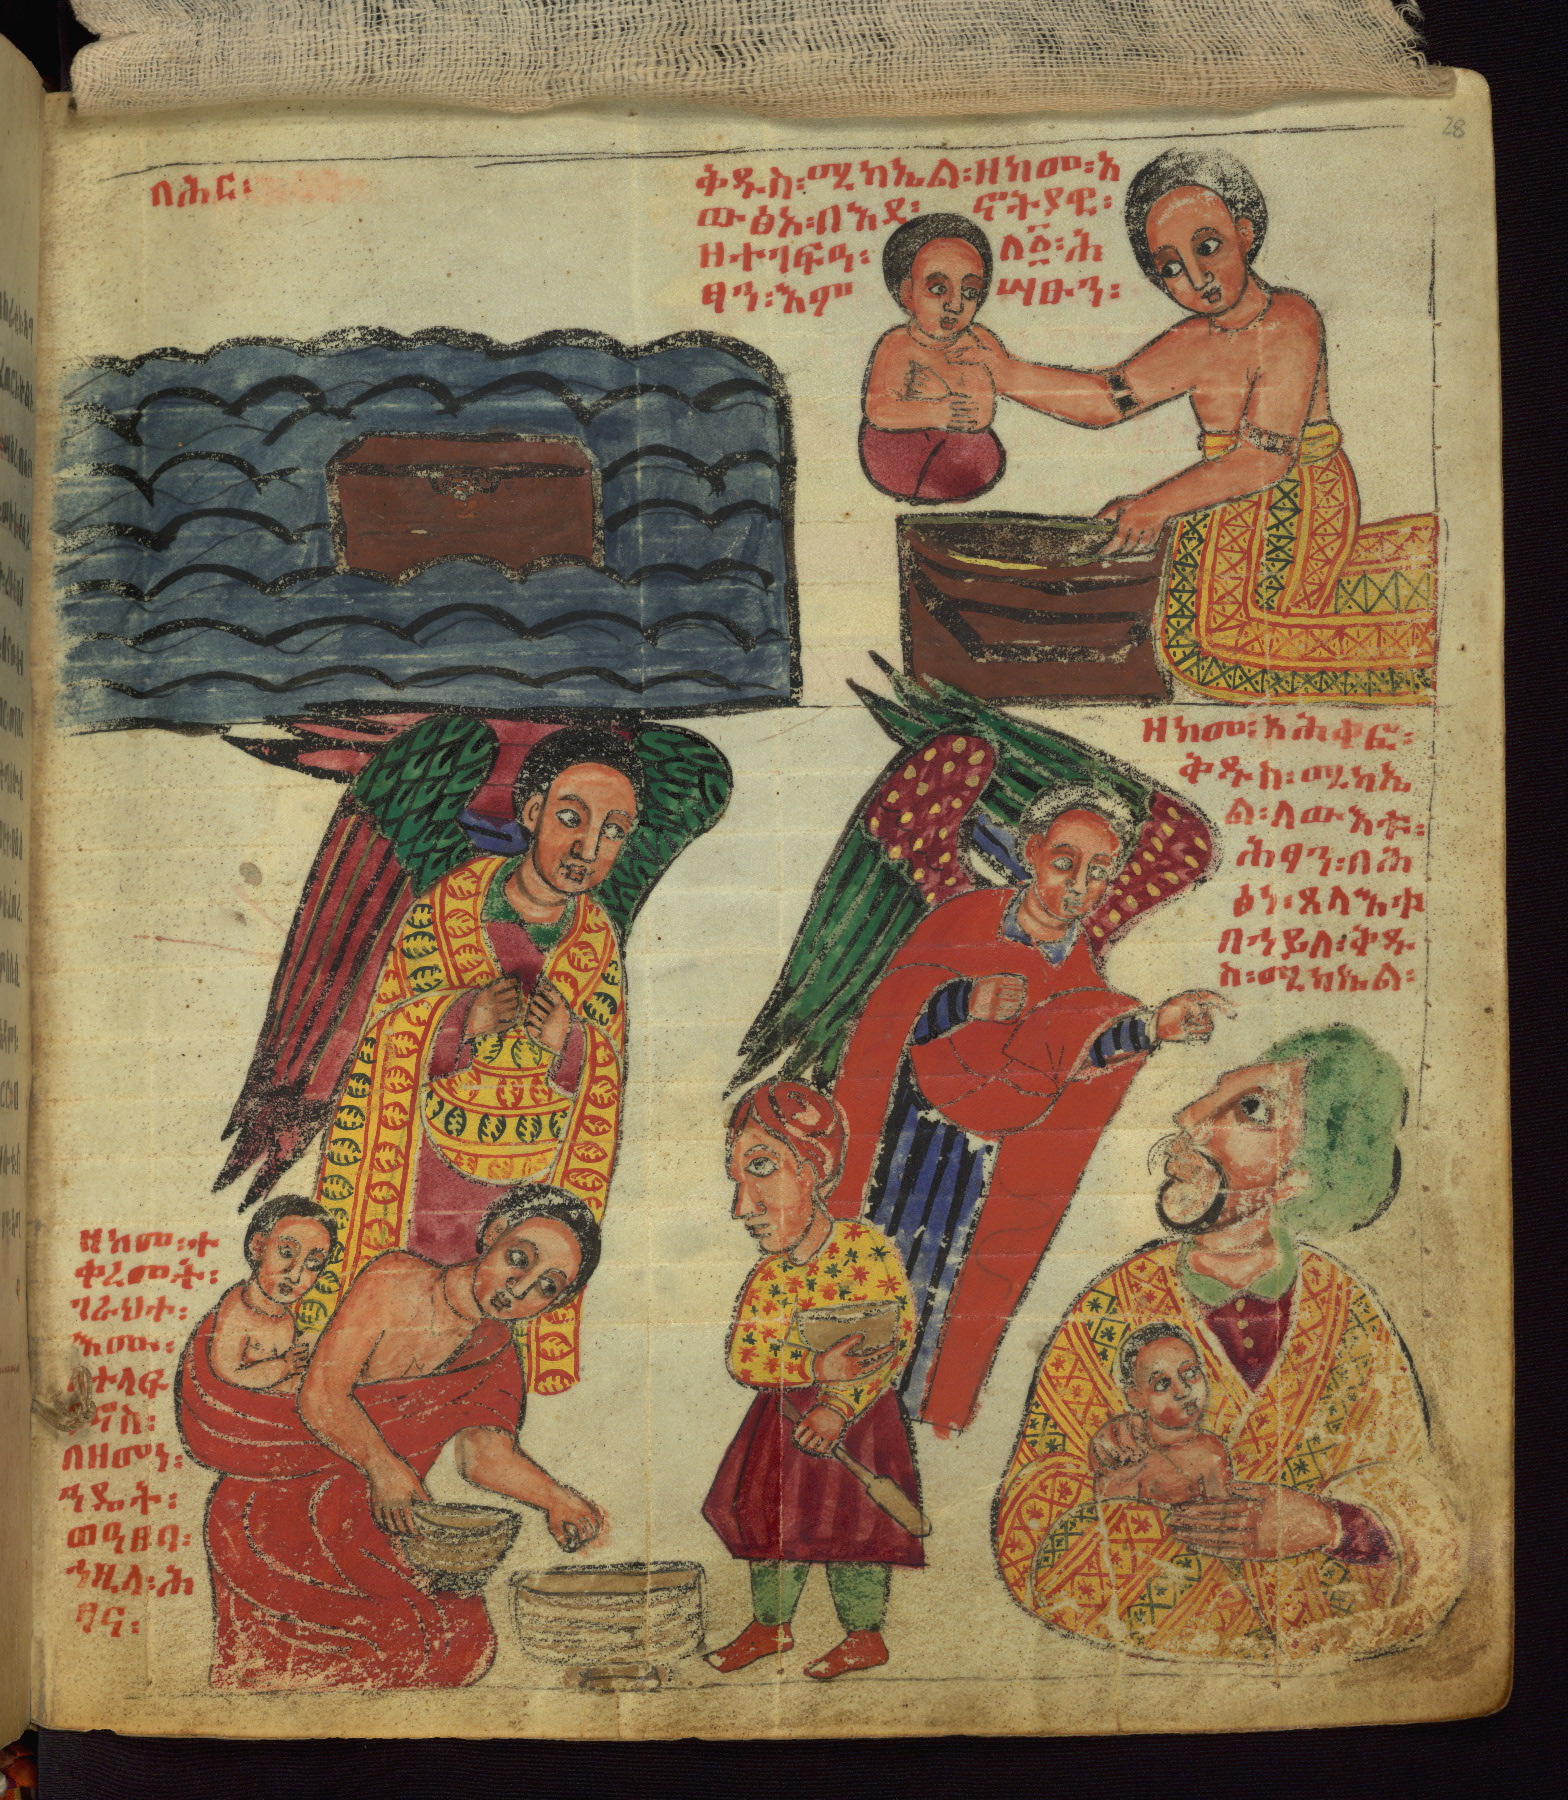 28
በሕር፡
ቅዱስ፡ሚካኤል፡ዘከመ፡አ
ውፅአ፡በእደ፡ ኖትያዊ፡
ዘተገፍዓ፡ ለ፩፡ሕ
ፃን፡እም ሣፁን፡
ዘከመ፡አሕቀፎ፡
ቅዱስ፡ሚካኤ
ል፡ለውእቱ፡
ሕፃን፡በሕ
ፅነ፡
በኀይለ፡ቅዱ
ስ፡ሚካኤል፡
ዘከመ፡ተ
ቀረመት፡
ገራህተ፡
እሙ፡
በዘመነ፡
ንዴት፡
ወዓፀባ፡
ኀዚላ፡ሕ
ፃና፡